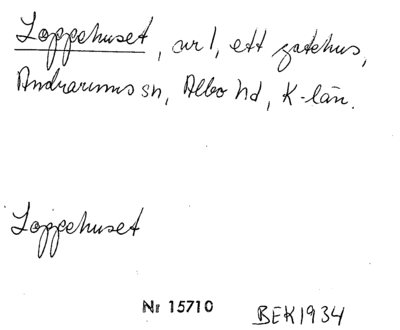 Loppehuset, avl, ett gatehus,
Andrarums sn, Albo hd, K-län.
Loppehuset
Nr 15710
BEK1934